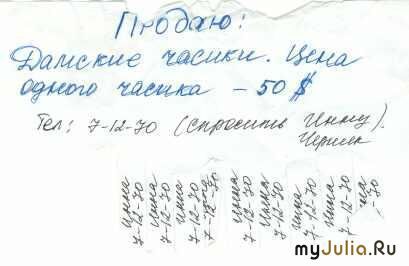 Продаю:
Дамские часики. Цена
одного часика – 50 $
Тел: 7-12-70 (спросить Инну).
Черник
Инна 7-12-70
Инна 7-12-70
Инна 7-12-70
7-12-70
Инна 7-12-70
Инна 7-12-70
Инна 7-12-70
Инна 7-12-70
на -70
myJulia.Ru